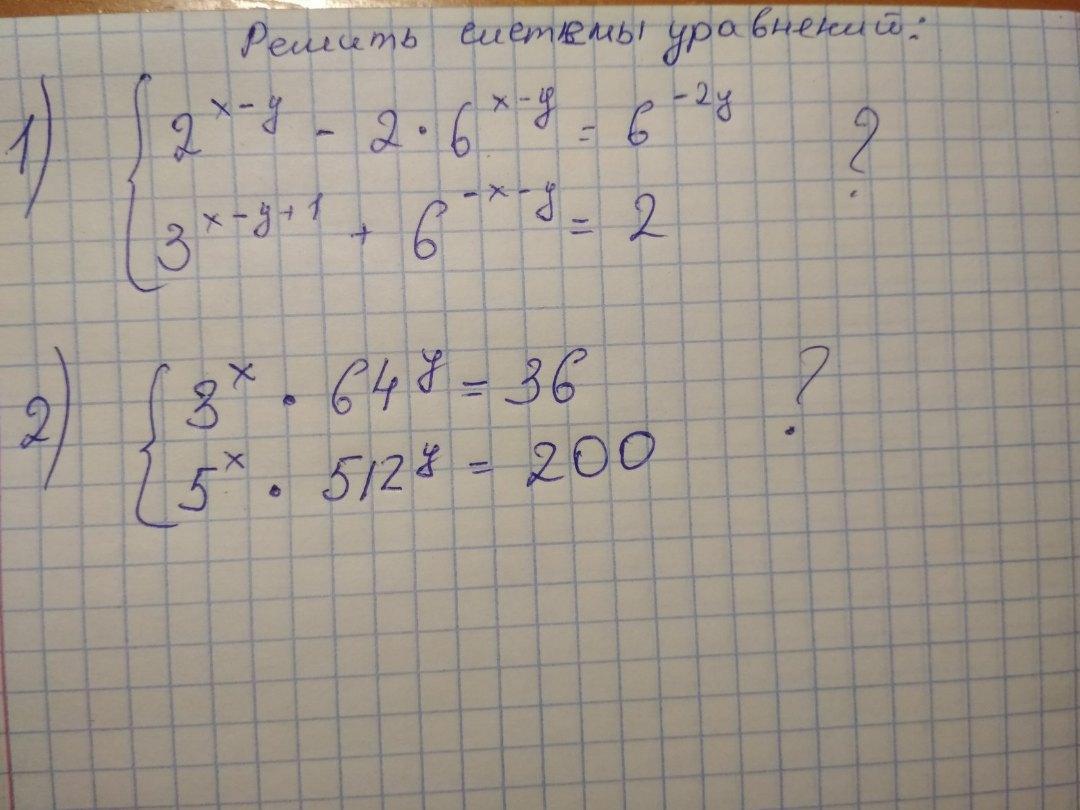 Решить системы уравнений:
1) { 2^{x-y} - 2 · 6^{x-y} = 6^{-2y} ?
3^{x-y+1} + 6^{-x-y} = 2
2) { 3^x · 64^y = 36 ?
5^x · 512^y = 200